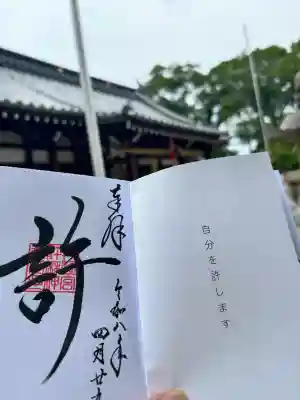 自分を許します
奉拝
令和八年
四月廿
許